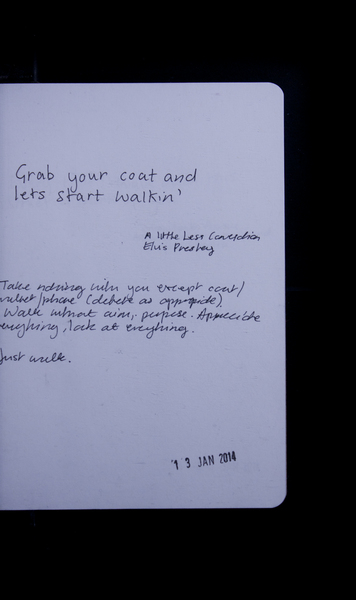 Grab your coat and
lets start walkin'
A little Less Conversation
Elvis Presley
Take nothing with you except coat/
wallet/phone (delete as appropriate).
Walk without aim, purpose. Appreciate
everything, look at everything.
Just walk.
13 JAN 2014